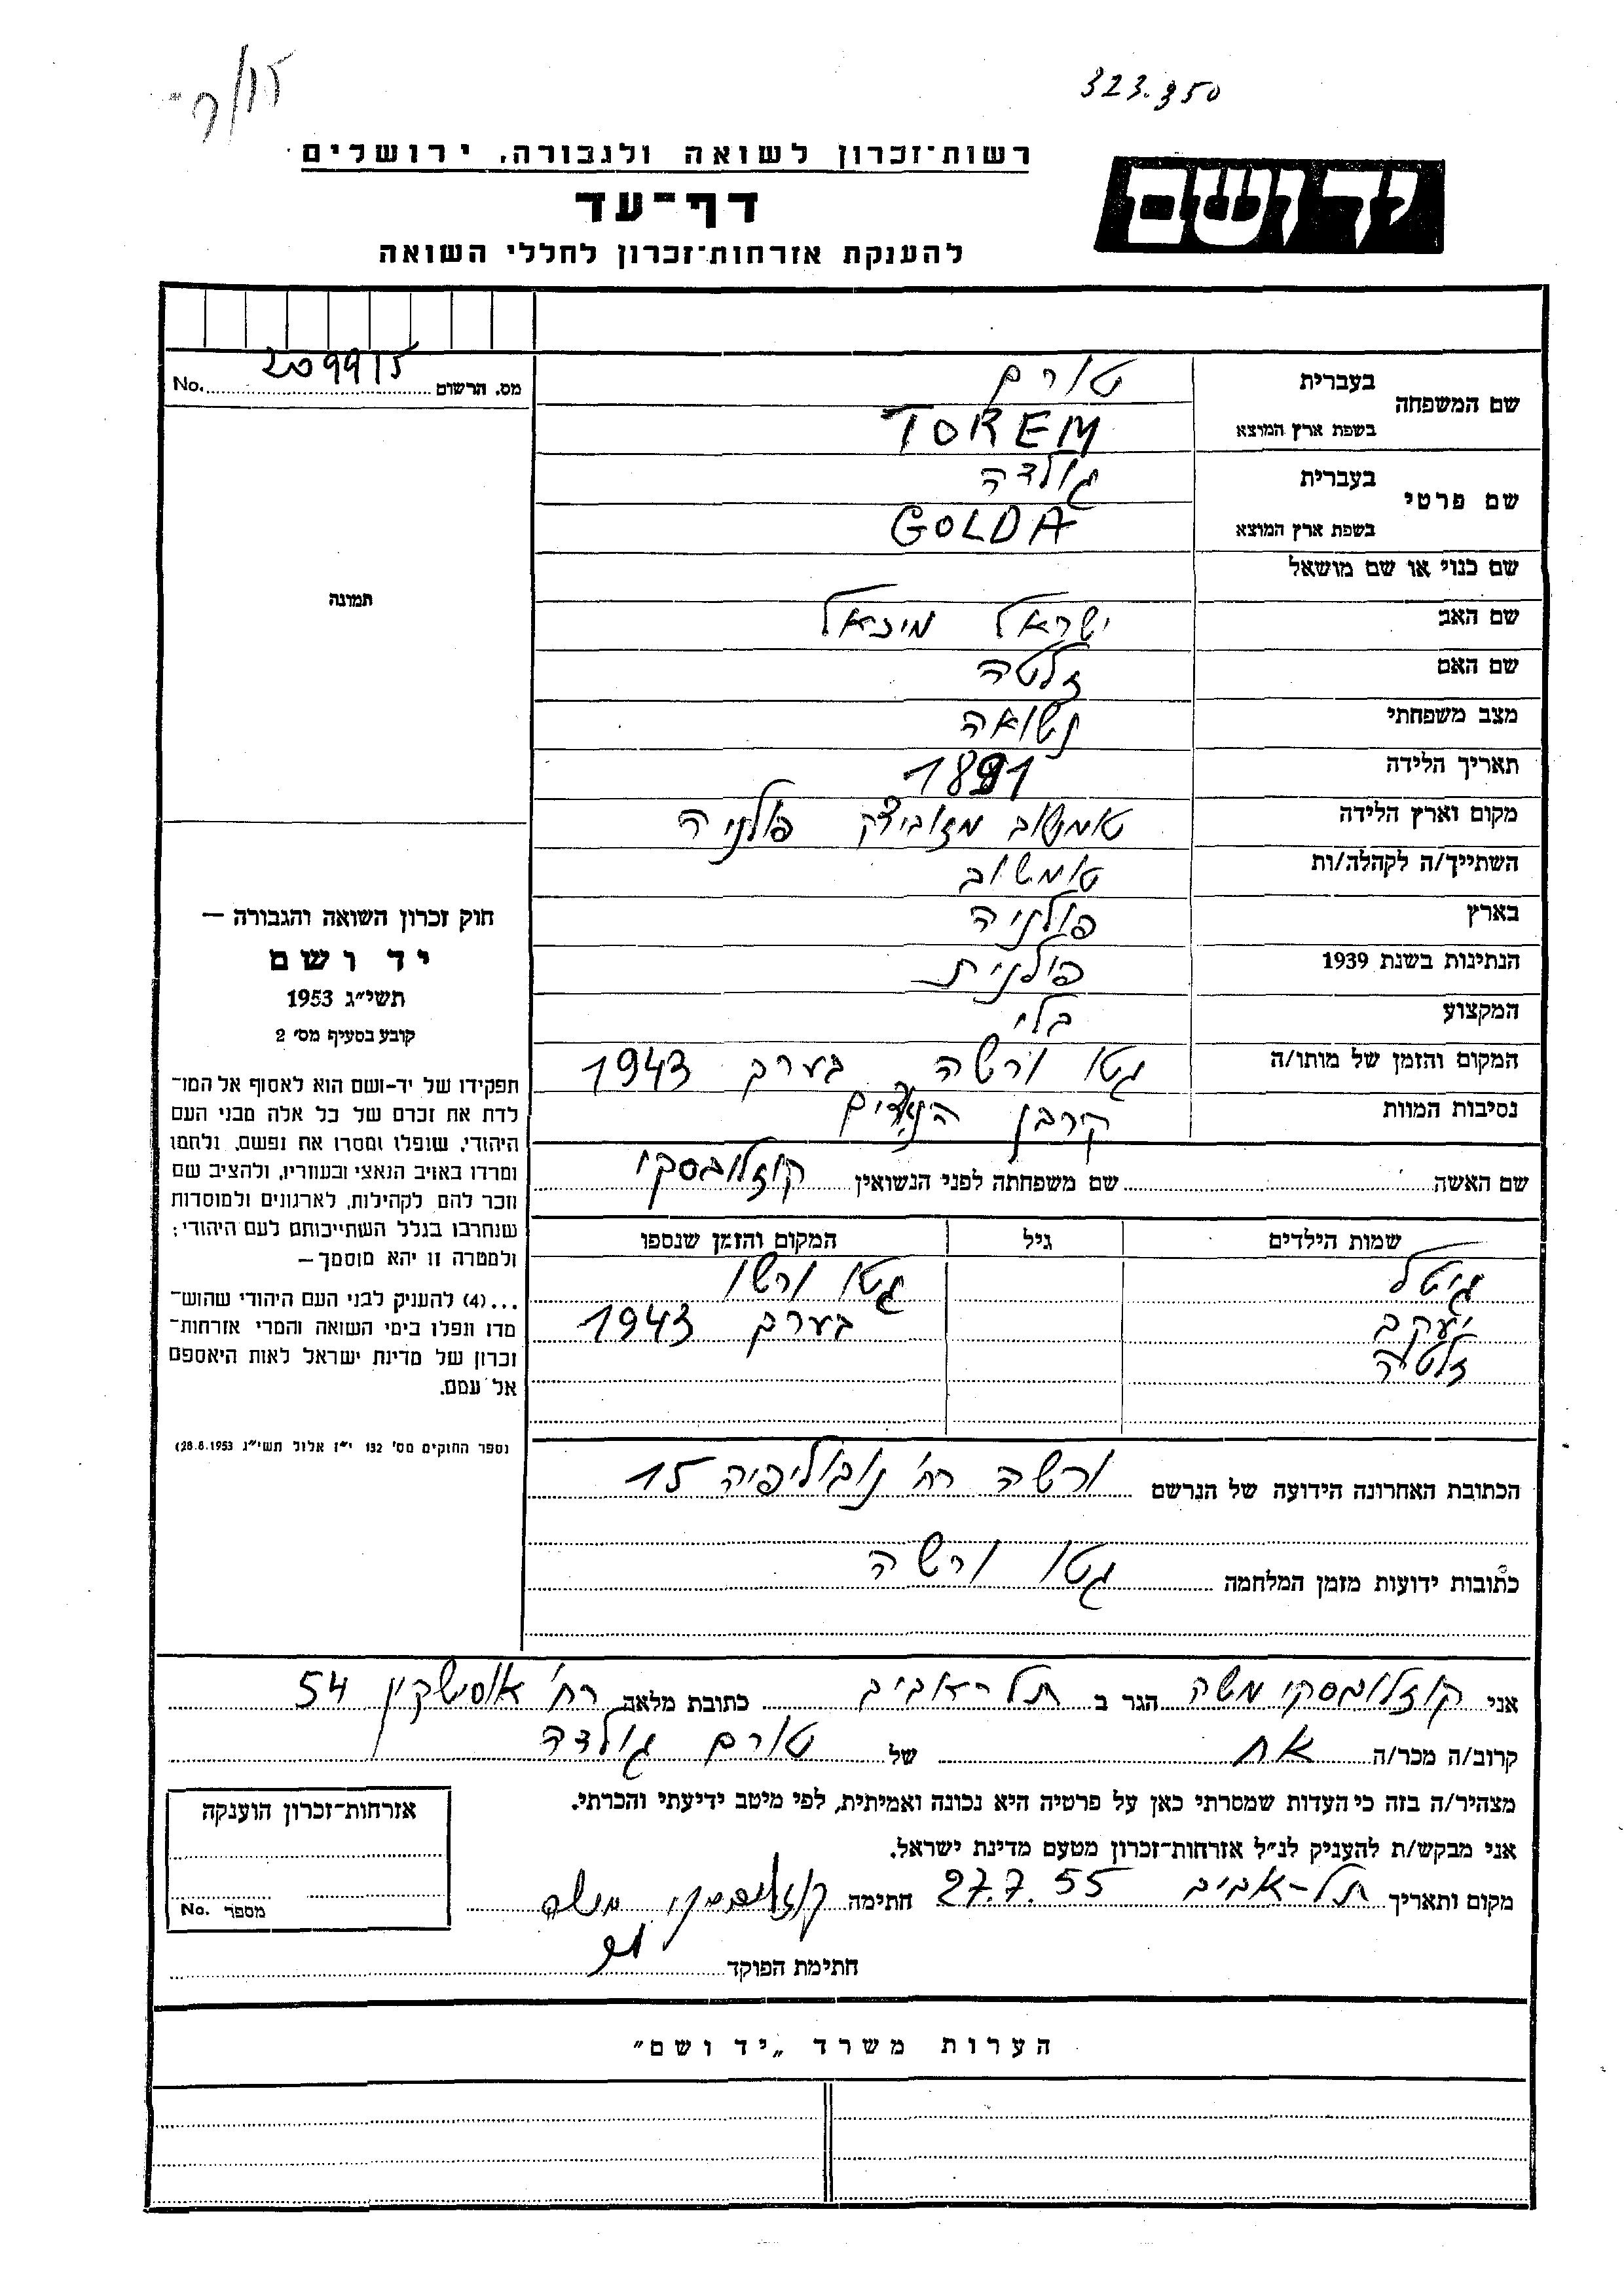 323.350
רשות־זכרון לשואה ולגבורה, ירושלים
יד ושם
דף־עד
להענקת אזרחות־זכרון לחללי השואה
מס. הרשום No. 209915
תמונה
שם המשפחה בעברית טורם
בשפת ארץ המוצא TOREM
שם פרטי בעברית גולדה
בשפת ארץ המוצא GOLDA
שם כנוי או שם מושאל
שם האב ישראל מיזאל
שם האם זלטה
מצב משפחתי נשואה
תאריך הלידה 1891
מקום וארץ הלידה טומשוב מזוביצק פולניה
השתייך/ה לקהלה/ות טומשוב
בארץ פולניה
הנתינות בשנת 1939 פולנית
המקצוע בלי
המקום והזמן של מותו/ה גטו ורשה בערב 1943
נסיבות המוות קורבן הנאצים
שם האשה שם משפחתה לפני הנשואין קוזלובסקי
שמות הילדים גיל המקום והזמן שנספו
גיטל גטו ורשו
יעקב בערב 1943
זלטה
הכתובת האחרונה הידועה של הנרשם ורשה רח' נובוליפיה 15
כתובות ידועות מזמן המלחמה גטו ורשה
חוק זכרון השואה והגבורה —
יד ושם
תשי״ג 1953
קובע בסעיף מס׳ 2
תפקידו של יד-ושם הוא לאסוף אל המו־
לדת את זכרם של כל אלה מבני העם
היהודי, שנפלו ומסרו את נפשם, נלחמו
ומרדו באויב הנאצי ובעוזריו, ולהציב שם
וזכר להם לקהילות, לארגונים ולמוסדות
שנחרבו בגלל השתייכותם לעם היהודי;
ולמטרה זו יהא מוסמך —
...(4) להעניק לבני העם היהודי שהוש־
מדו ונפלו בימי השואה והמרי אזרחות־
זכרון של מדינת ישראל לאות היאספם
אל עמם.
(ספר החוקים מס׳ 132 י״ז אלול תשי״ג 28.8.1953)
אני קוזלובסקי משה הגר ב תל-אביב כתובת מלאה רח' אוסישקין 54
קרוב/ה מכר/ה אח של טורם גולדה
מצהיר/ה בזה כי העדות שמסרתי כאן על פרטיה היא נכונה ואמיתית, לפי מיטב ידיעתי והכרתי.
אני מבקש/ת להעניק לנ״ל אזרחות־זכרון מטעם מדינת ישראל.
מקום ותאריך תל-אביב 27.7.55 חתימה קוזלובסקי משה
חתימת הפוקד
אזרחות־זכרון הוענקה
מספר No.
הערות משרד „יד ושם״